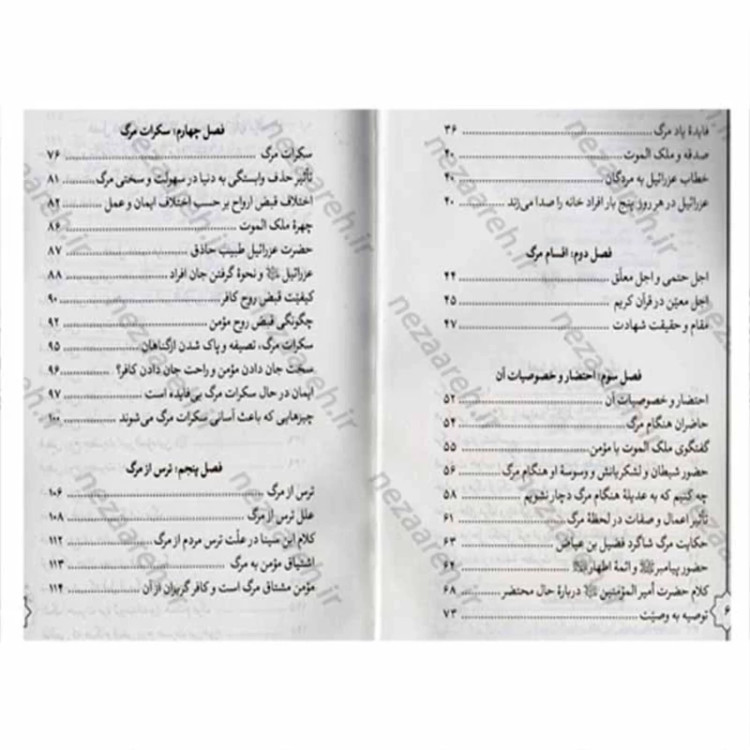 فایدهٔ یاد مرگ ........ ۳۶
صدقه و ملک الموت ........ ۴۰
خطاب عزرائیل به مردگان ........ ۴۰
عزرائیل در هر روز پنج بار افراد خانه را صدا می‌زند ........ ۴۰
فصل دوم: اقسام مرگ
اجل حتمی و اجل معلّق ........ ۴۴
اجل معیّن در قرآن کریم ........ ۴۵
مقام و حقیقت شهادت ........ ۴۷
فصل سوم: احتضار و خصوصیات آن
احتضار و خصوصیات آن ........ ۵۲
حاضران هنگام مرگ ........ ۵۴
گفتگوی ملک الموت با مؤمن ........ ۵۵
حضور شیطان و لشکریانش و وسوسهٔ او هنگام مرگ ........ ۵۶
چه کنیم که به عدیلهٔ هنگام مرگ دچار نشویم ........ ۵۸
تأثیر اعمال و صفات در لحظهٔ مرگ ........ ۶۱
حکایت مرگ شاگرد فضیل بن عیاض ........ ۶۳
حضور پیامبر ﷺ و ائمهٔ اطهار ........ ۶۴
کلام حضرت أمیر المؤمنین دربارهٔ حال محتضر ........ ۶۸
توصیه به وصیّت ........ ۷۳
۶
فصل چهارم: سکرات مرگ
سکرات مرگ ........ ۷۶
تأثیر حذف وابستگی به دنیا در سهولت و سختی مرگ ........ ۸۱
اختلاف قبض ارواح بر حسب اختلاف ایمان و عمل ........ ۸۲
چهرهٔ ملک الموت ........ ۸۶
حضرت عزرائیل طبیب حاذق ........ ۸۷
عزرائیل و نحوهٔ گرفتن جان افراد ........ ۸۸
کیفیّت قبض روح کافر ........ ۹۰
چگونگی قبض روح مؤمن ........ ۹۲
سکرات مرگ، تصفیه و پاک شدن ازگناهان ........ ۹۵
سخت جان دادن مؤمن و راحت جان دادن کافر؟ ........ ۹۶
ایمان در حال سکرات مرگ بی‌فایده است ........ ۹۷
چیزهایی که باعث آسانی سکرات مرگ می‌شوند ........ ۱۰۰
فصل پنجم: ترس از مرگ
ترس از مرگ ........ ۱۰۶
علل ترس از مرگ ........ ۱۰۸
کلام ابن سینا در علّت ترس مردم از مرگ ........ ۱۱۲
اشتیاق مؤمن به مرگ ........ ۱۱۳
مؤمن مشتاق مرگ است و کافر گریزان از آن ........ ۱۱۴
nezaareh.ir